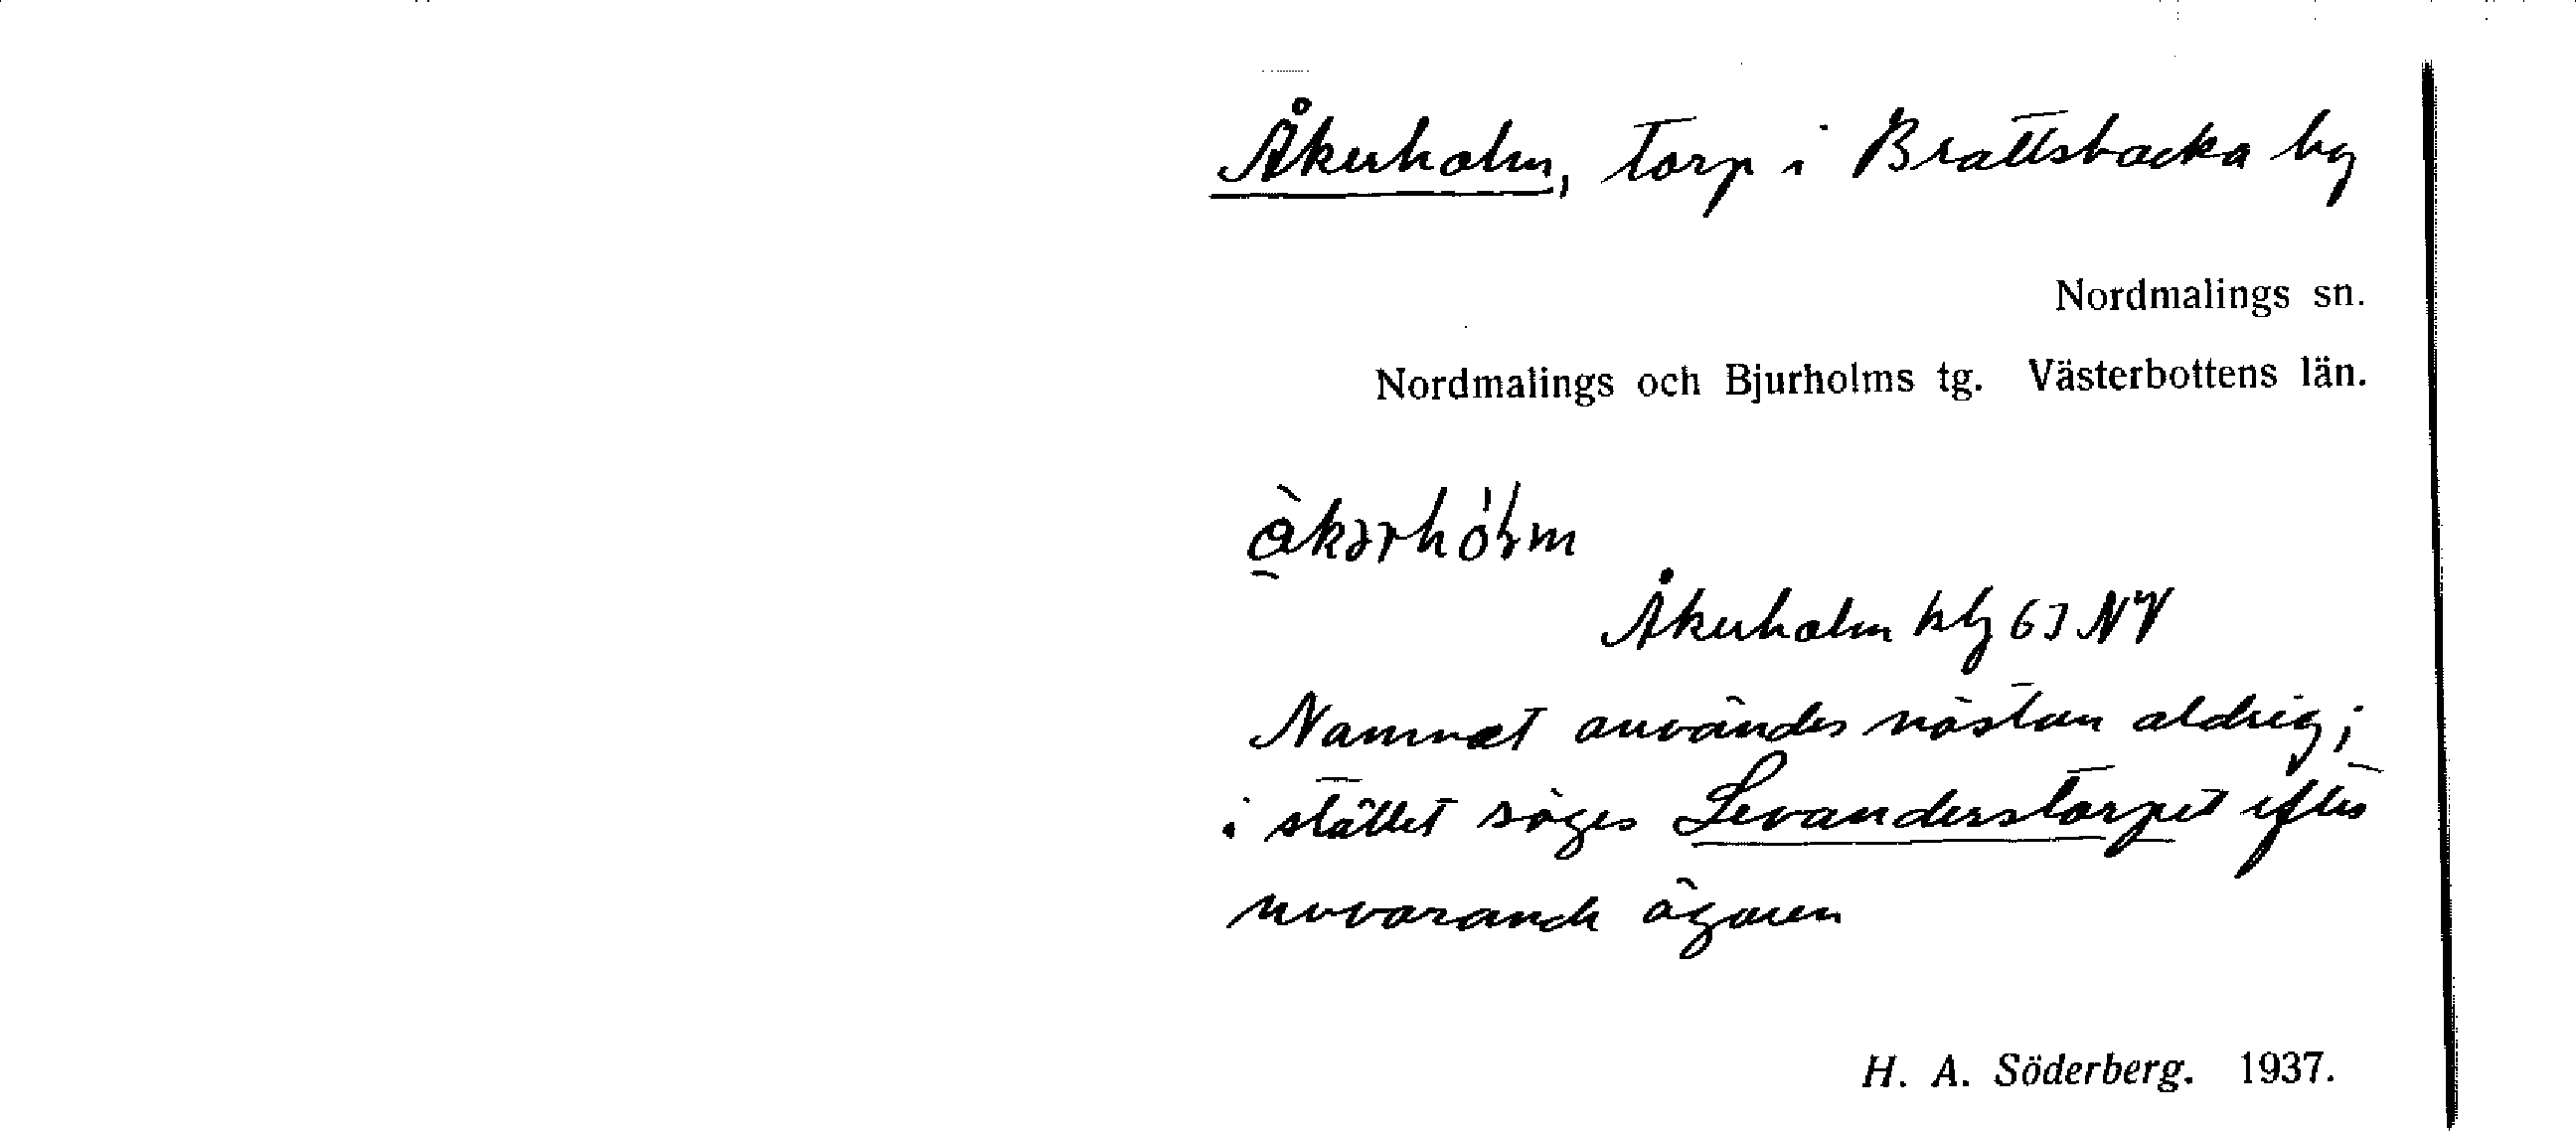 Åkerholm, torp i Brattsbacka by
Nordmalings sn.
Nordmalings och Bjurholms tg. Västerbottens län.
Åkerholm hbl 63 NV
Namnet användes nästan aldrig;
i stället säges Levanderstorpet efter
nuvarande ägaren
H. A. Söderberg. 1937.